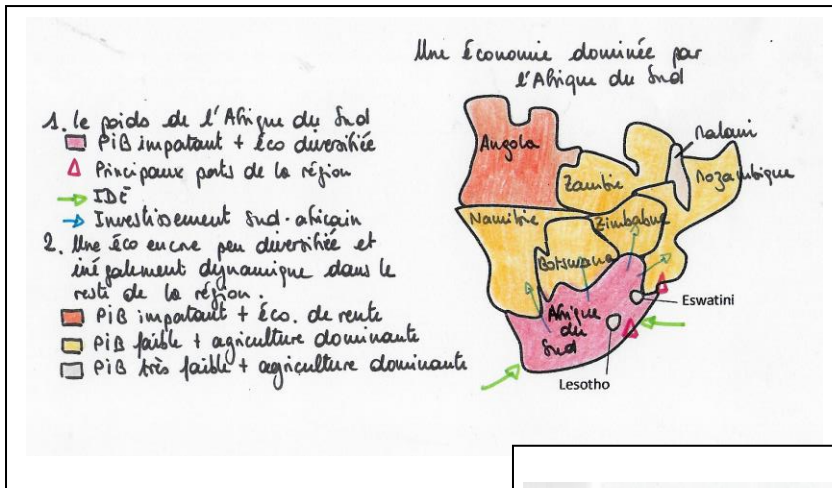 Une économie dominée par
l'Afrique du Sud
1. Le poids de l'Afrique du Sud
PIB important + éco diversifiée
Principaux ports de la région
IDE
Investissement Sud-africain
2. Une éco encore peu diversifiée et
inégalement dynamique dans le
reste de la région.
PIB important + éco. de rente
PIB faible + agriculture dominante
PIB très faible + agriculture dominante
Angola
Malawi
Zambie
Mozambique
Namibie
Zimbabwe
Botswana
Eswatini
Afrique
du
Sud
Lesotho